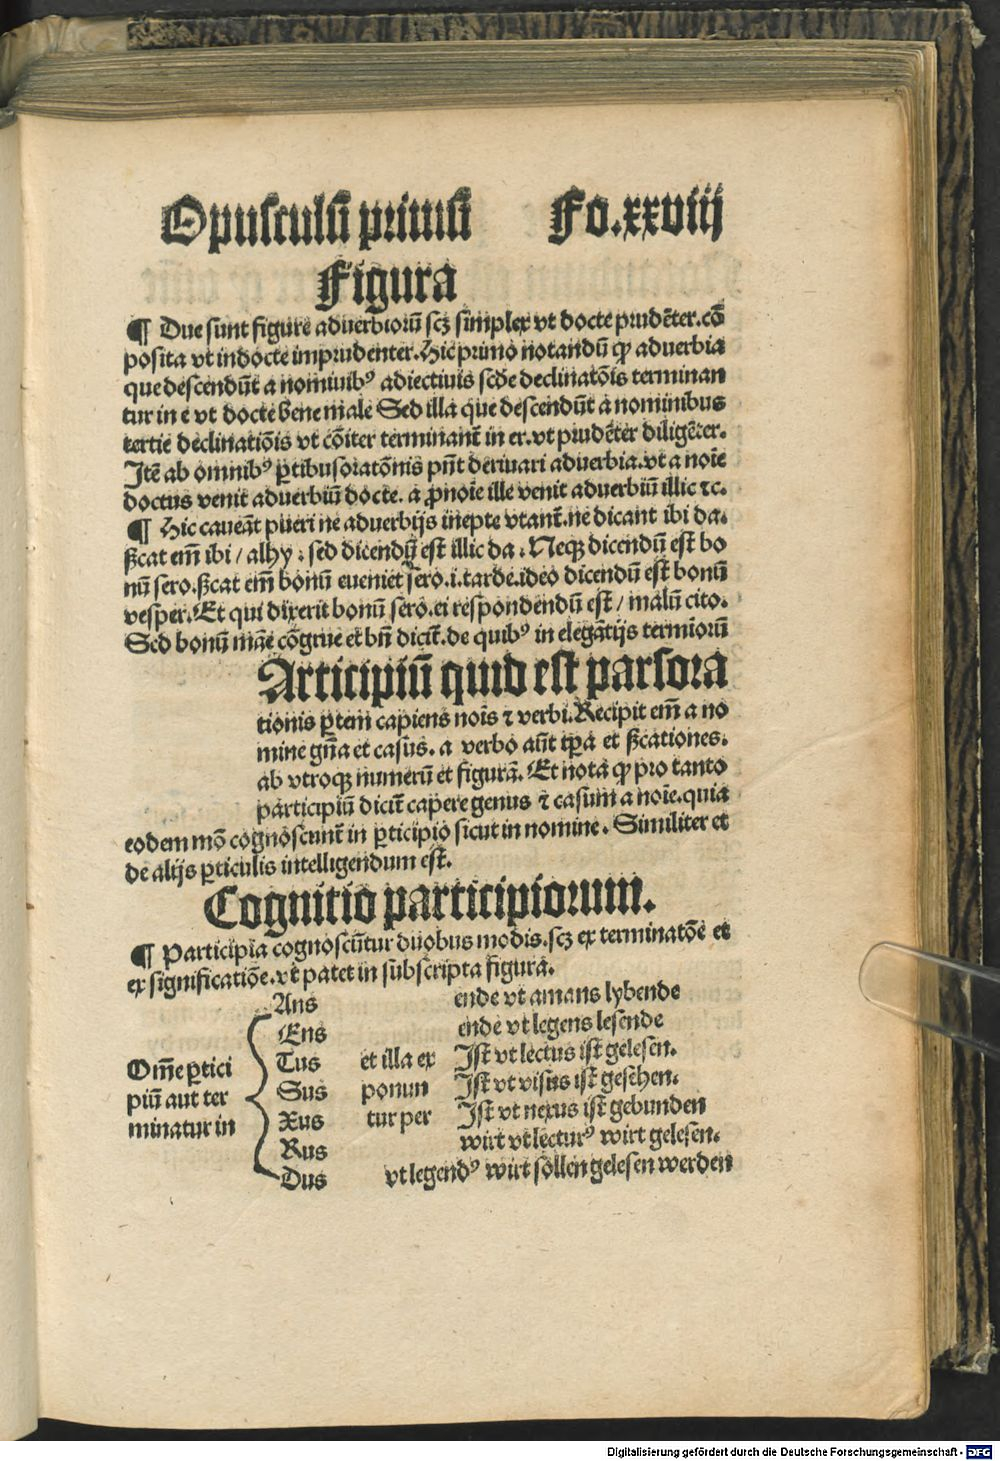 Opusculū primū Fo.xxviij
Figura
¶ Due sunt figure aduerbiorū scꝫ simplex vt docte prudēter.cō
posita vt indocte imprudenter.Hic primo notandū ꝙ aduerbia
que descendūt a nominibꝰ adiectiuis scđe declinatōis terminan
tur in e vt docte bene male Sed illa que descendūt a nominibus
tertie declinatiōis vt cōiter terminant̄ in er.vt prudēter diligēter.
Itē ab omnibꝰ ꝑtibus oratōnis pn̄t deriuari aduerbia.vt a noīe
doctus venit aduerbiū docte. a ꝓnoīe ille venit aduerbiū illic ⁊c.
¶ Hic caueāt pueri ne aduerbijs inepte vtant̄.ne dicant ibi da.
ſꝫcat em̄ ibi / alhy : sed dicendū est illic da : Neqꝫ dicendū est bo
nū sero.ſꝫcat em̄ bonū eueniet sero.i.tarde.ideo dicendū est bonū
vesper.Et qui dixerit bonū sero.ei respondendū est / malū cito.
Sed bonū māe cōgrue et bn̄ dicit̄.de quibꝰ in elegātijs termīorū
Articipiū quid est pars ora
tionis ꝑtem capiens noīs ⁊ verbi.Recipit em̄ a no
mine gn̄a et casus. a verbo aūt tꝑa et ſꝫcationes.
ab vtroqꝫ numerū et figurā. Et nota ꝙ pro tanto
participiū dicit̄ capere genus ⁊ casum a noīe.quia
eodem mō cognoscunt̄ in ꝑticipio sicut in nomine. Similiter et
de alijs ꝑticulis intelligendum est.
Cognitio participiorum.
¶ Participia cognoscūtur duobus modis.scꝫ ex terminatōe et
ex significatiōe.vt patet in subscripta figura.
Ans ende vt amans lybende
Ens ende vt legens lesende
Om̄e ꝑtici Tus et illa ex Ist vt lectus ist gelesen.
piū aut ter Sus ponun Ist vt visus ist gesehen.
minatur in Xus tur per Ist vt nexus ist gebunden
Rus wirt vt lecturꝰ wirt gelesen.
Dus vt legendꝰ wirt sollen gelesen werden
Digitalisierung gefördert durch die Deutsche Forschungsgemeinschaft - DFG